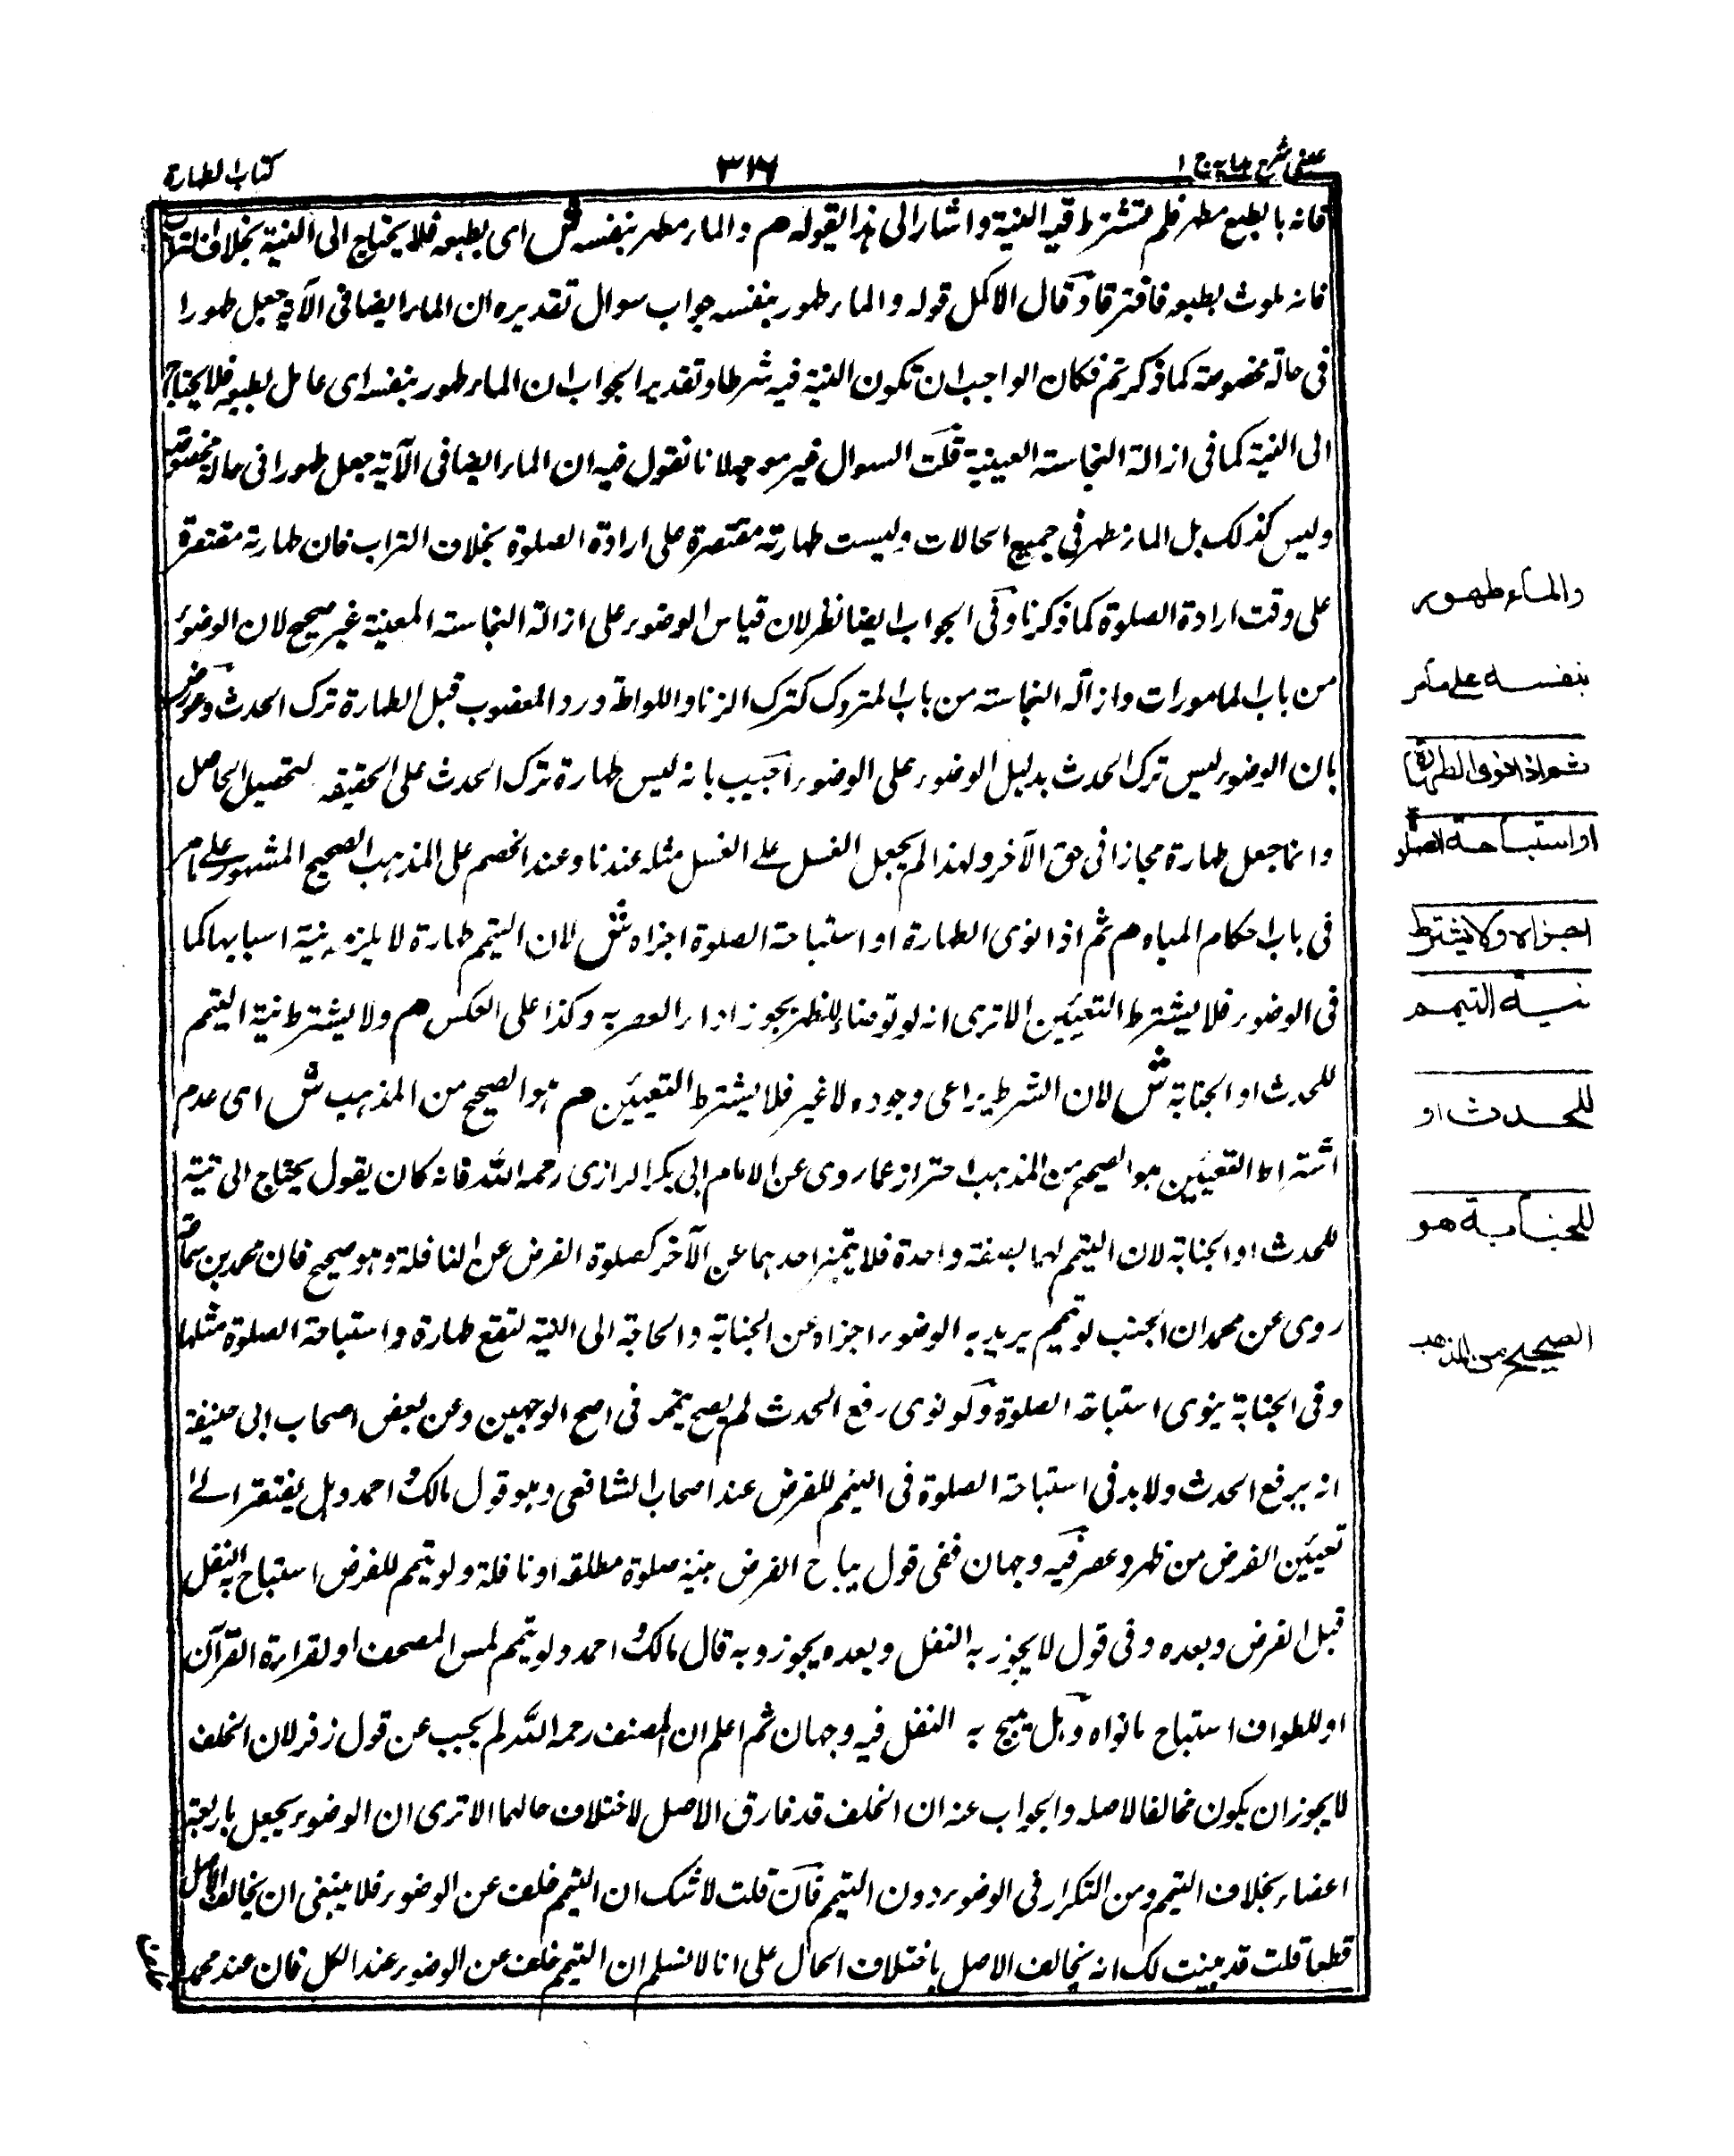 عینی شرح هدایہ ج ۱
۳۱۶
کتاب الطهارة
فانه بالطبع مطهر فلم تشترط فيه النية واشار الى هذا بقوله م والماء مطهر بنفسه ش اى بطبعه فلا يحتاج الى النية بخلاف التراب
فانه ملوث بطبعه فافترقا وقال الاكمل قوله والماء طهور بنفسه جواب سوال تقديره ان الماء ايضا فى الآية جعل طهورا
فى حالة مخصوصة كما ذكرتم فكان الواجب ان تكون النية فيه شرطا وتقدير الجواب ان الماء طهور بنفسه اى عامل بطبعه فلا يحتاج
الى النية كما فى ازالة النجاسة العينية قلت السوال غير موجه لانا نقول فيه ان الماء ايضا فى الآية جعل طهورا فى حالة مخصوصة
وليس كذلك بل الماء مطهر فى جميع الحالات وليست طهارته مقتصرة على ارادة الصلوة بخلاف التراب فان طهارته مقتصرة
على وقت ارادة الصلوة كما ذكرنا وفى الجواب ايضا نظر لان قياس الوضوء على ازالة النجاسة المعينة غير صحيح لان الوضوء
من باب المامورات وازالة النجاسة من باب المتروك كترك الزنا واللواطة ورد المغصوب قبل الطهارة ترك الحدث وعورض
بان الوضوء ليس ترك الحدث بدليل الوضوء على الوضوء اجيب بانه ليس طهارة ترك الحدث على الحقيقة لتحصيل الحاصل
وانما جعل طهارة مجازا فى حق الآخر ولهذا لم يجعل الغسل على الغسل مثله عندنا وعند الخصم على المذهب الصحيح المشهور على ما مر
فى باب احكام المياه م ثم اذا نوى الطهارة او استباحة الصلوة اجزاه ش لان التيمم طهارة لا يلزم نية اسبابها كما
فى الوضوء فلا يشترط التعيين الا ترى انه لو توضأ للظهر يجوز اداء العصر به وكذا على العكس م ولا يشترط نية التيمم
للحدث او الجنابة ش لان الشرط يراعى وجوده لا غير فلا يشترط التعيين م هو الصحيح من المذهب ش اى عدم
اشتراط التعيين هو الصحيح من المذهب احتراز عما روى عن الامام ابى بكر الرازى رحمه الله فانه كان يقول يحتاج الى نية
للحدث او الجنابة لان التيمم لهما بصفة واحدة فلا يتميز احدهما عن الآخر كصلوة الفرض عن النافلة وهو صحيح فان محمد بن سماعة
روى عن محمد ان الجنب لو تيمم يريد به الوضوء اجزاه عن الجنابة والحاجة الى النية لتقع طهارة واستباحة الصلوة مثلها
وفى الجنابة ينوى استباحة الصلوة ولو نوى رفع الحدث لم يصح تيممه فى اصح الوجهين وعن بعض اصحاب ابى حنيفة
انه يرفع الحدث ولا بد فى استباحة الصلوة فى التيمم للفرض عند اصحاب الشافعى وهو قول مالك احمد وهل يفتقر الى
تعيين الفرض من ظهر وعصر فيه وجهان ففى قول يباح الفرض بنية صلوة مطلقة او نافلة ولو تيمم للفرض استباح به النفل
قبل الفرض وبعده وفى قول لا يجوز به النفل وبعده يجوز وبه قال مالك احمد ولو تيمم لمس المصحف او لقراءة القرآن
او للطواف استباح ما نواه وهل يبيح به النفل فيه وجهان ثم اعلم ان المصنف رحمه الله لم يجب عن قول زفر لان الخلف
لا يجوز ان يكون مخالفا لاصله والجواب عنه ان الخلف قد فارق الاصل لاختلاف حالهما الا ترى ان الوضوء يجعل باربعة
اعضاء بخلاف التيمم ومن التكرار فى الوضوء دون التيمم فان قلت لا شك ان التيمم خلف عن الوضوء فلا ينبغى ان يخالف الاصل
قطعا قلت قد بينت لك انه يخالف الاصل باختلاف الحال على انا لا نسلم ان التيمم خلف عن الوضوء عند الكل فان عند محمد
والماء طهور
بنفسه على ما مر
ثم اذا نوى الطهارة
او استباحة الصلوة
اجزاه ولا يشترط
نية التيمم
للحدث او
للجنابة هو
الصحيح من المذهب